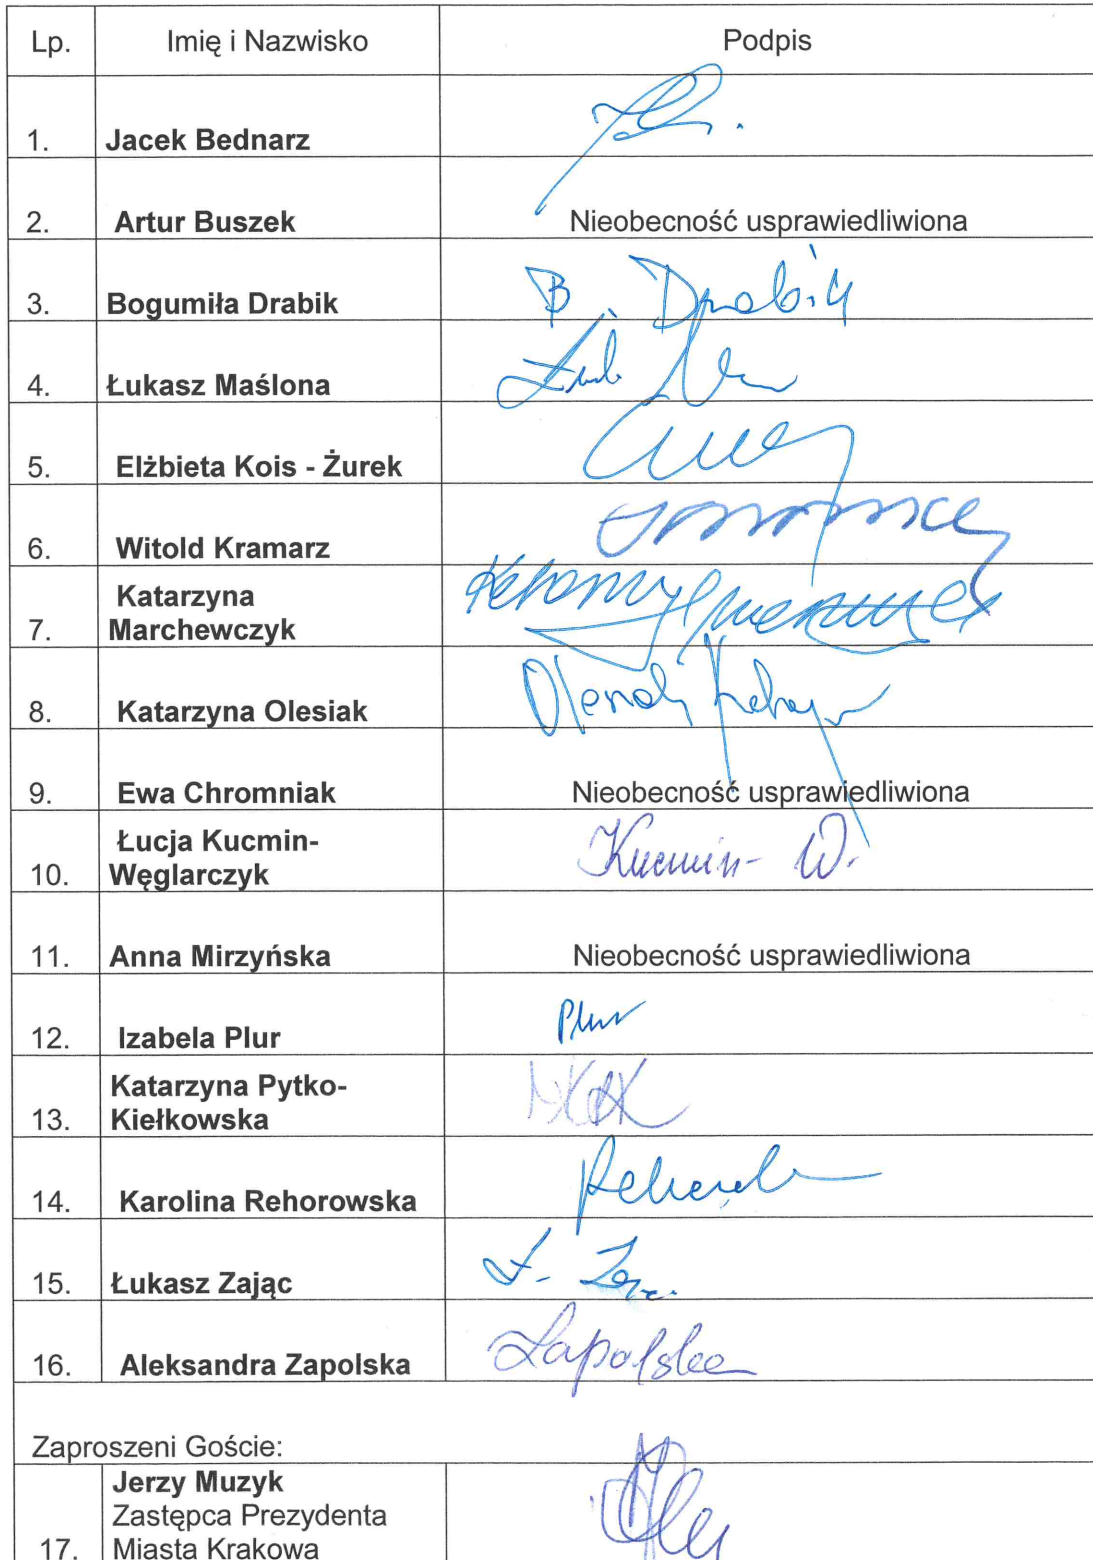 Lp. Imię i Nazwisko Podpis
1. Jacek Bednarz
2. Artur Buszek Nieobecność usprawiedliwiona
3. Bogumiła Drabik B. Drabik
4. Łukasz Maślona
5. Elżbieta Kois - Żurek
6. Witold Kramarz
Katarzyna
7. Marchewczyk
8. Katarzyna Olesiak
9. Ewa Chromniak Nieobecność usprawiedliwiona
Łucja Kucmin-
10. Węglarczyk Kucmin- W.
11. Anna Mirzyńska Nieobecność usprawiedliwiona
12. Izabela Plur Plur
Katarzyna Pytko-
13. Kiełkowska
14. Karolina Rehorowska
15. Łukasz Zając
16. Aleksandra Zapolska Zapolska
Zaproszeni Goście:
Jerzy Muzyk
Zastępca Prezydenta
17. Miasta Krakowa